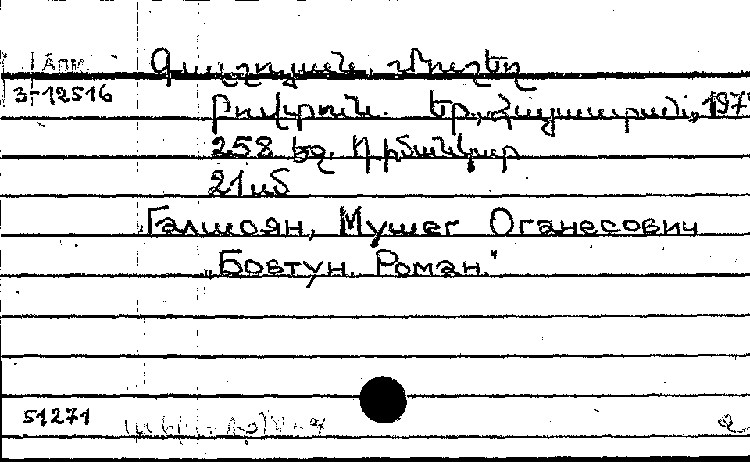 Апм.
3-12516
Գալշոյան, Մուշեղ
Բովտուն. Եր., Հայաստան, 197
258 եջ. դիմանկար
21սմ
Галшоян, Мушег Оганесович
„Бовтун. Роман."
51271
2